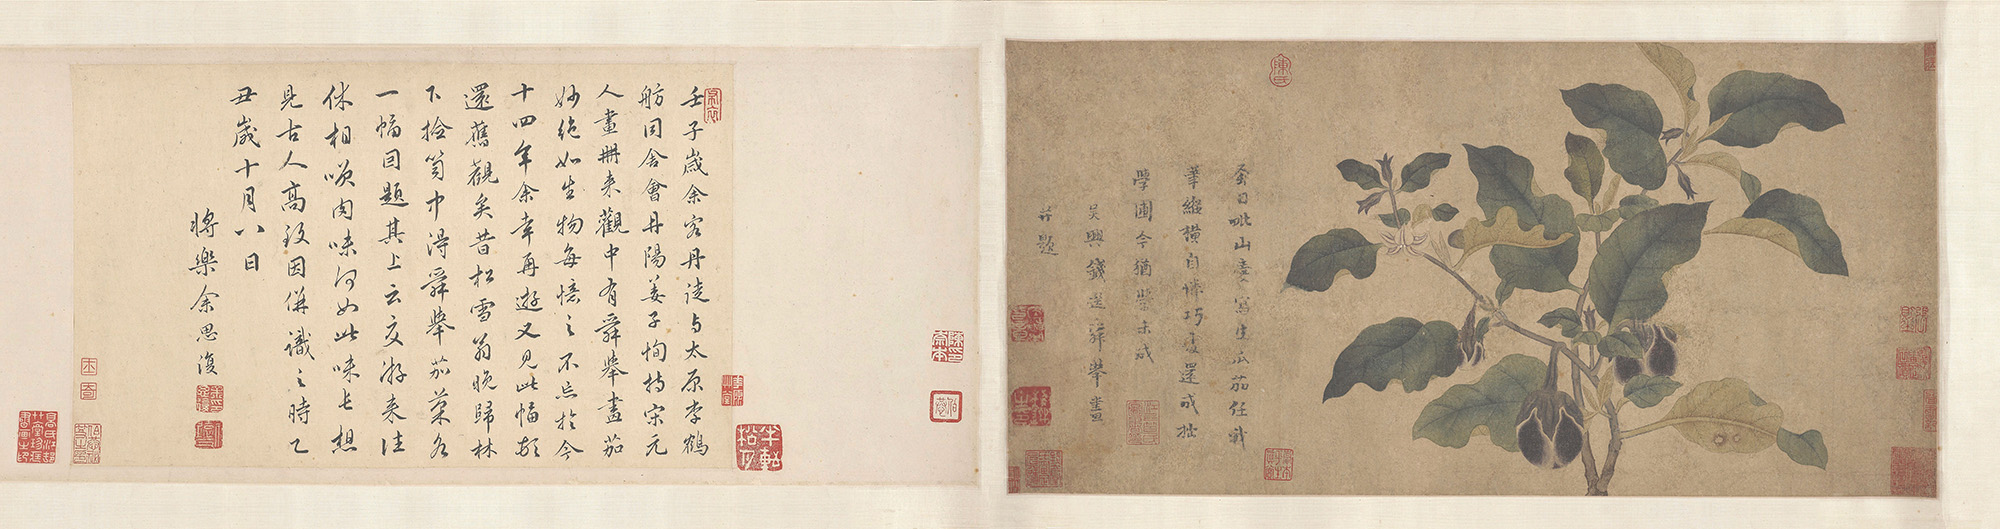 昔日毗山愛寫生瓜茄任我
筆縱橫自憐巧處還成拙
學圃今猶業未成
吳興錢選舜舉畫
并題
壬子歲余客丹徒与太原李鶴
舫同舍會丹陽姜子恂持宋元
人畫冊来觀中有舜舉畫茄
妙絕如生物每憶之不忘於今
十四年余幸再遊又見此幅頓
還舊觀矣昔松雪翁晚歸林
下拾笥中得舜舉茄菜各
一幅因題其上云交游来往
休相唉肉味何如此味長想
見古人高致因併識之時乙
丑歲十月八日
將樂余思復